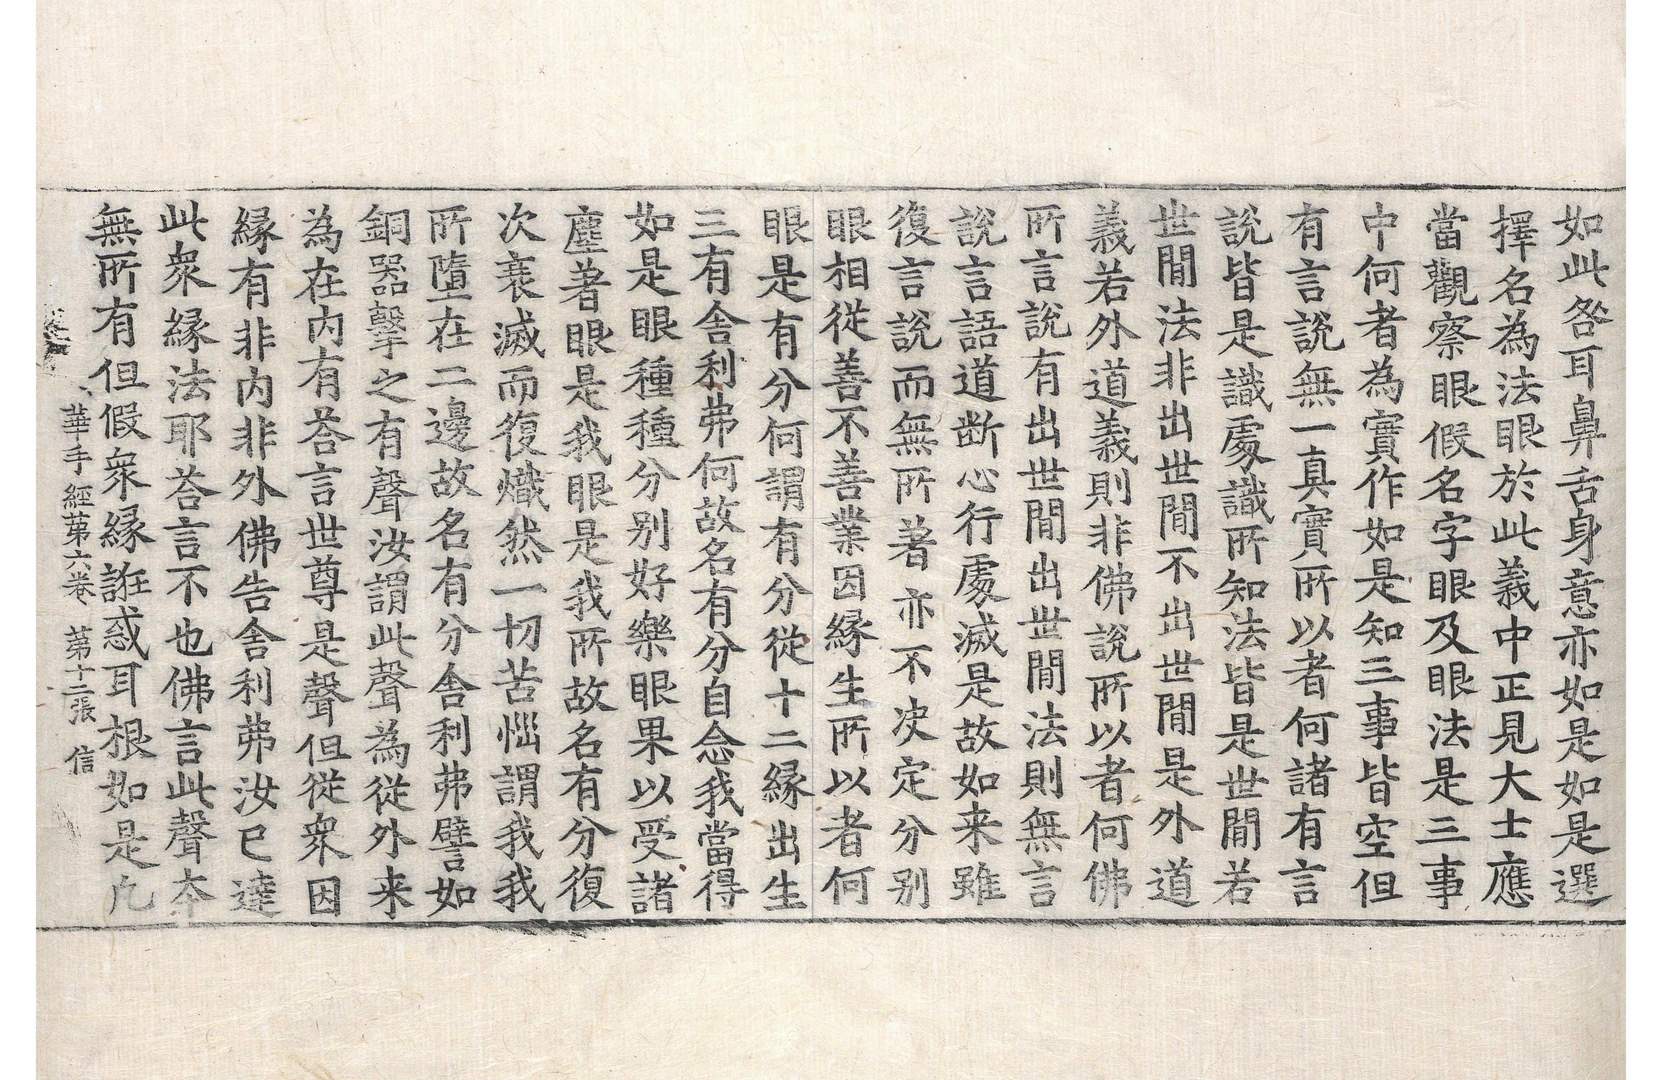 如此咎耳鼻舌身意亦如是如是選
擇名為法眼於此義中正見大士應
當觀察眼假名字眼及眼法是三事
中何者為實作如是知三事皆空但
有言說無一真實所以者何諸有言
說皆是識處識所知法皆是世閒若
世閒法非出世閒不出世閒是外道
義若外道義則非佛說所以者何佛
所言說有出世閒出世閒法則無言
說言語道断心行處滅是故如来雖
復言說而無所著亦不决定分别
眼相従善不善業因縁生所以者何
眼是有分何謂有分從十二縁出生
三有舍利弗何故名有分自念我當得
如是眼種種分别好樂眼果以受諸
塵著眼是我眼是我所故名有分復
次衰滅而復熾然一切苦惱謂我我
所墮在二邊故名有分舍利弗譬如
銅器擊之有聲汝謂此聲為從外来
為在内有荅言世尊是聲但從衆因
縁有非内非外佛告舍利弗汝已達
此衆縁法耶荅言不也佛言此聲夲
無所有但假衆縁誑惑耳根如是凢
華手經苐六卷 苐十二張 信